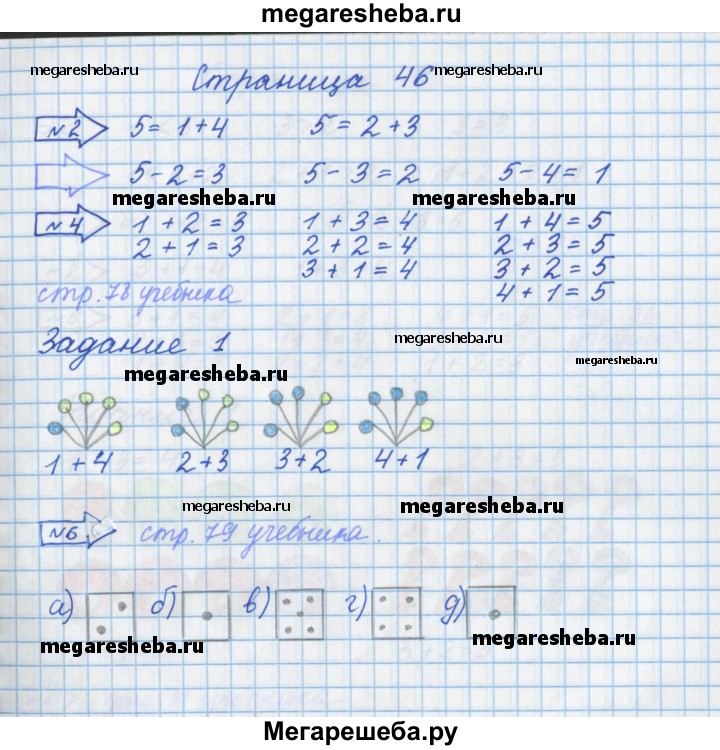 megaresheba.ru
megaresheba.ru Страница 46 megaresheba.ru
№2 5 = 1 + 4 5 = 2 + 3
5 - 2 = 3 5 - 3 = 2 5 - 4 = 1
megaresheba.ru megaresheba.ru
№4 1 + 2 = 3 1 + 3 = 4 1 + 4 = 5
2 + 1 = 3 2 + 2 = 4 2 + 3 = 5
3 + 1 = 4 3 + 2 = 5
стр. 78 учебника 4 + 1 = 5
Задание 1 megaresheba.ru
megaresheba.ru megaresheba.ru
1 + 4 2 + 3 3 + 2 4 + 1
megaresheba.ru megaresheba.ru
№6 стр. 79 учебника.
а) б) в) г) д)
megaresheba.ru megaresheba.ru
Мегарешеба.ру